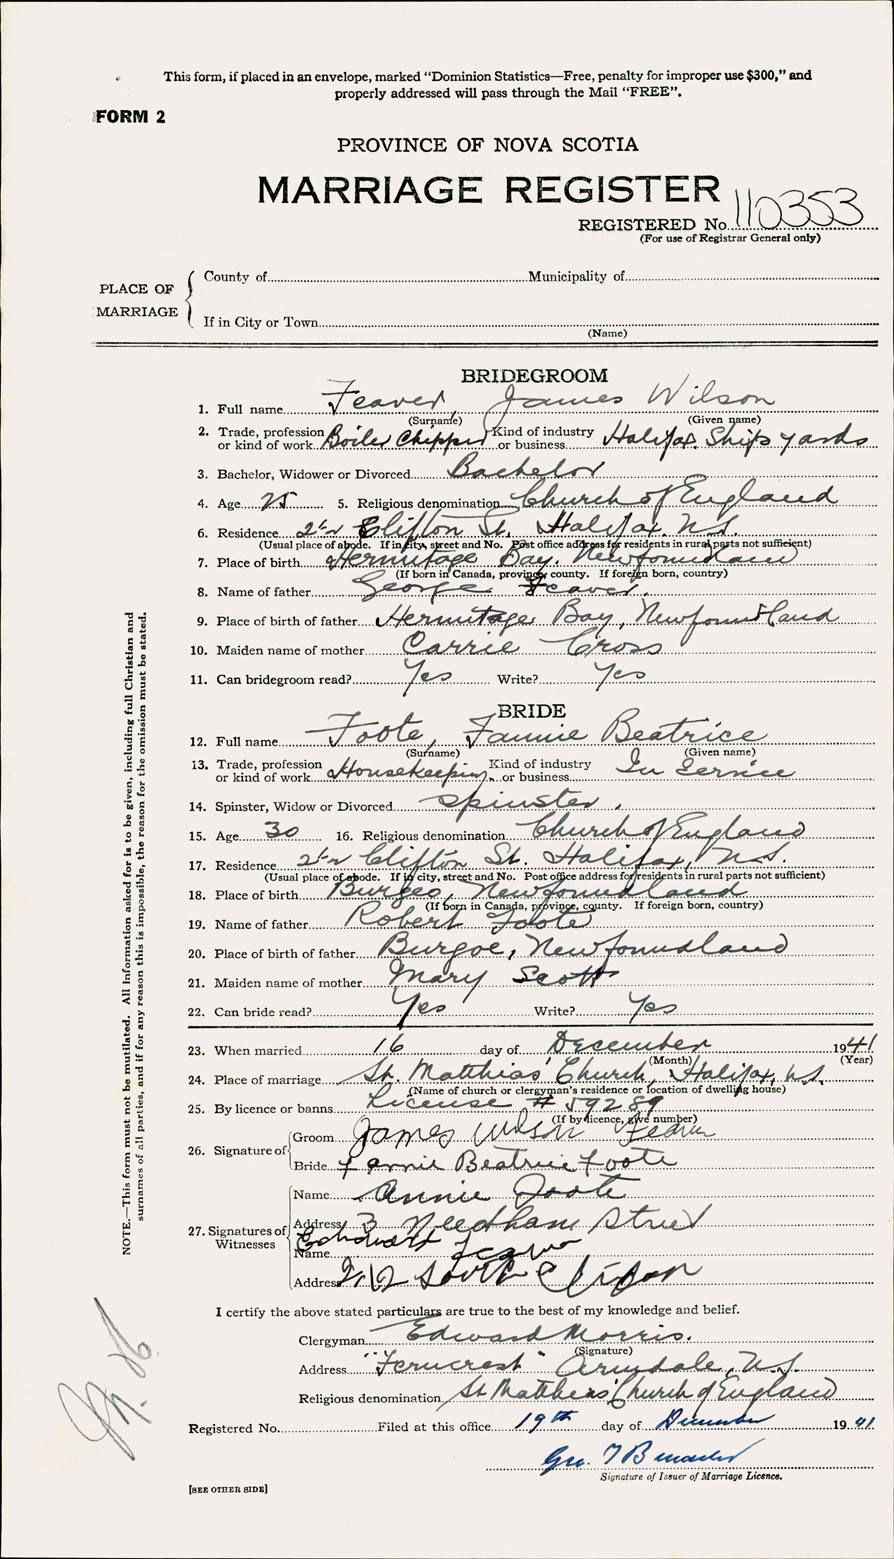 This form, if placed in an envelope, marked "Dominion Statistics—Free, penalty for improper use $300," and
properly addressed will pass through the Mail "FREE".
FORM 2
PROVINCE OF NOVA SCOTIA
MARRIAGE REGISTER
REGISTERED No. 110353
(For use of Registrar General only)
PLACE OF MARRIAGE
County of Municipality of
If in City or Town
(Name)
BRIDEGROOM
1. Full name Feaver, James Wilson
(Surname) (Given name)
2. Trade, profession or kind of work Boiler Chipper Kind of industry or business Halifax Ships yards
3. Bachelor, Widower or Divorced Bachelor
4. Age 25 5. Religious denomination Church of England
6. Residence Clifton St. Halifax N.S.
(Usual place of abode. If in city, street and No. Post office address for residents in rural parts not sufficient)
7. Place of birth Hermitage Bay, Newfoundland
(If born in Canada, province, county. If foreign born, country)
8. Name of father George Feaver.
9. Place of birth of father Hermitage Bay, Newfoundland
10. Maiden name of mother Carrie Cross
11. Can bridegroom read? Yes Write? Yes
BRIDE
12. Full name Foote, Fannie Beatrice
(Surname) (Given name)
13. Trade, profession or kind of work Housekeeping Kind of industry or business In Service
14. Spinster, Widow or Divorced Spinster.
15. Age 30 16. Religious denomination Church of England
17. Residence Clifton St. Halifax, N.S.
(Usual place of abode. If in city, street and No. Post office address for residents in rural parts not sufficient)
18. Place of birth Burgeo, Newfoundland
(If born in Canada, province, county. If foreign born, country)
19. Name of father Robert Foote
20. Place of birth of father Burgoe, Newfoundland
21. Maiden name of mother Mary Scott
22. Can bride read? Yes Write? Yes
23. When married 16 day of December 1941
(Month) (Year)
24. Place of marriage St. Matthias' Church, Halifax, N.S.
(Name of church or clergyman's residence or location of dwelling house)
25. By licence or banns License # 59289
(If by licence, give number)
26. Signature of
Groom James Wilson Feaver
Bride Fannie Beatrice Foote
27. Signatures of Witnesses
Name Annie Foote
Address 3 Needham Street
Name Edward Feaver
Address South Clifton
I certify the above stated particulars are true to the best of my knowledge and belief.
Clergyman Edward Morris.
(Signature)
Address "Ferncrest" Armdale, N.S.
Religious denomination St Matthias' Church of England
Registered No. Filed at this office 19th day of December 1941
Geo.
Signature of Issuer of Marriage Licence.
[SEE OTHER SIDE]
NOTE.—This form must not be mutilated. All information asked for is to be given, including full Christian and
surnames of all parties, and if for any reason this is impossible, the reason for the omission must be stated.